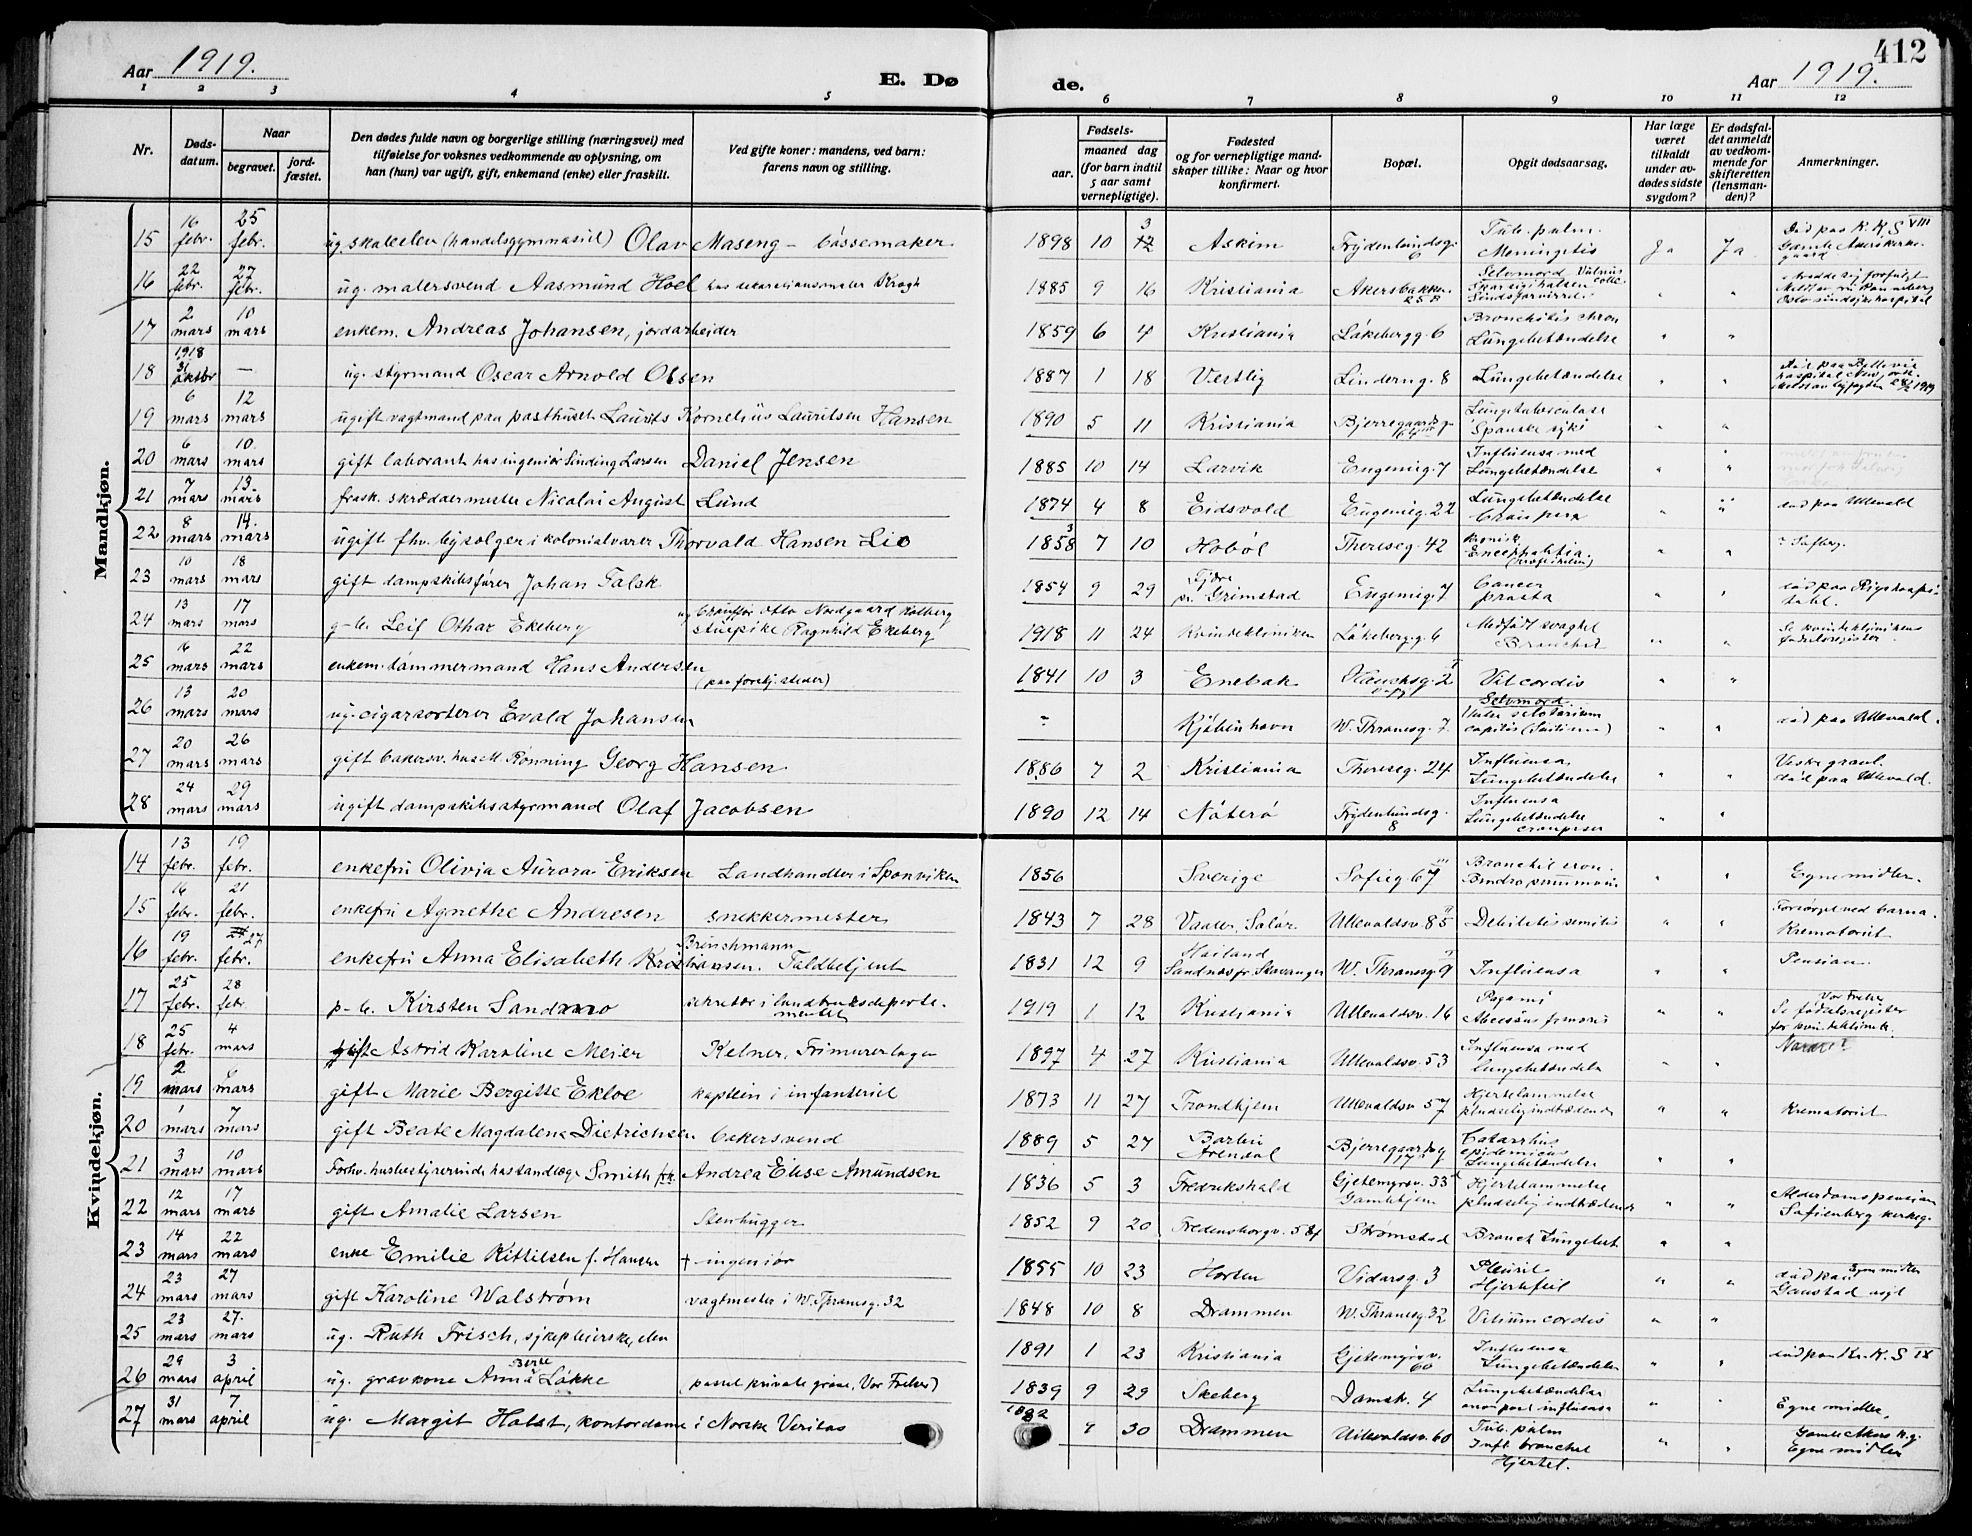 412
Aar 1919.
E. Dø
de.
Aar 1919.
1 2 3 4 5 6 7 8 9 10 11 12
Nr.
Døds-
datum.
Naar
begravet.
jord-
fæstet.
Den dødes fulde navn og borgerlige stilling (næringsvei) med
tilføielse for voksnes vedkommende av oplysning, om
han (hun) var ugift, gift, enkemand (enke) eller fraskilt.
Ved gifte koner: mandens, ved barn:
farens navn og stilling.
Fødsels-
aar.
maaned dag
(for barn indtil
5 aar samt
vernepligtige).
Fødested
og for vernepligtige mand-
skaper tillike: Naar og hvor
konfirmert.
Bopæl.
Opgit dødsaarsag.
Har læge
været
tilkaldt
under av-
dødes sidste
sygdom?
Er dødsfal-
det anmeldt
av vedkom-
mende for
skifteretten
(lensman-
den)?
Anmerkninger.
Mandkjøn.
15 16 febr. 25 febr. ug. skoleelev (handelsgymnasiet) Olav Maseng - bøssemaker 1898 10 3 Askim Frydenlundsg. 6 Tub. pulm. Meningitis Ja Ja Død paa K.K.S VIII Gamle Akers kirke-gaard
16 22 febr. 27 febr. ug. malersvend Aasmund Hoel hos dekorationsmaler Krogh 1885 9 16 Kristiania Akersbakken Selvmord Sindsforvirret " "
17 2 mars 10 mars enkem. Andreas Johansen, jordarbeider 1859 6 4 Kristiania Løkebergg. 6 Bronchitis chron Lungebetændelse " "
18 1918 31 oktbr — ug. styrmand Oscar Arnold Olsen 1887 1 18 Vestby Lindern g. 8 Lungebetændelse " "
19 6 mars 12 mars ugift vagtmand paa posthuset Laurits Kornelius Lauritsen Hansen 1890 5 11 Kristiania Bjerregaardsg. Lungetuberculose Spanske syke " "
20 6 mars 10. mars gift laborant hos ingeniør Sinding Larsen Daniel Jensen 1885 10 14 Larvik Eugenieg. 7 Influensa med Lungebetændelse " "
21 7 mars 13. mars frask. skræddermester Nicolai August Lund 1874 4 8 Eidsvold Eugenieg. 22 Lungebetændelse " " død paa Ullevald
22 8 mars 14. mars ugift fhv. bysælger i kolonialvarer Thorvald Hansen Lie 1858 7 10 Hobøl Thereseg. 42 " "
23 10 mars 18 mars gift dampskibsfører Johan Falsk 1854 9 29 Fjære pr. Grimstad Eugenieg. 7 Cancer prosta " " død paa Rigshospi-talet.
24 13 mars 17 mars g-b. Leif Othar Ekeberg ug Chauffør Otto Nordgaard Kolberg stuepike Ragnhild Ekeberg 1918 11 24 Kvindeklinikken Løkebergg. 6 Medfødt svaghet Bronchit " " Se kvindeklinikens fødselsregister.
25 16 mars 22 mars enkem. tømmermand Hans Andersen (paa forskj. steder) 1841 10 3 Enebak Vit cordis " "
26 13 mars 20 mars ug. cigarsorterer Evald Johansen - Kjøbenhavn W. Thranesg. 7. Selvmord. Vulnus sclotarium capitis " " død paa Ullevald.
27 20 mars 26 mars gift bakersv. hos M. Rønning Georg Hansen 1886 7 2 Kristiania Thereseg. 24 Influensa, Lungebetændelse " " Vestre gravl. død paa Ullevald.
28 24 mars 29 mars ugift dampskibsstyrmand Olaf Jacobsen 1890 12 14 Nøterø Frydenlundsg. 8 Influensa Lungebetændelse croupøser " "
Kvindekjøn.
14 13 febr. 19 febr. enkefru Olivia Aurora Eriksen Landhandler i Sponviken 1856 Sverige Sofieg 67 Bronchit cron. " " Egne midler.
15 16 febr. 21 febr. enkefru Agnethe Andresen snekkermester 1843 7 28 Vaaler, Solør. Ullevaldsv. 85 Debilitis senilis " " Forsørget ved barna. Krematoriet.
16 19 febr. 27 febr. enkefru Anna Elisabeth Kristiansen. Brinchmann Toldbetjent 1831 12 9 Høiland Sandnæs pr. Stavanger W. Thranesg. 9 Influensa " " Pension
17 25 febr. 28 febr. p-b. Kirsten Sandmo sekretær i landbruksdeparte-mentet 1919 1 12 Kristiania Ullevaldsv. 16 " " Vor Frelser Se fødselsregister for kvindeklinik.
18 25 febr. 4 mars gift Astrid Karoline Meier Kelner, Frimurerlogen 1897 4 27 Kristiania Ullevaldsv. 53 Influensa med lungebetændelse " "
19 2 mars mars gift Marie Bergitte Ekloe kaptein i infanteriet 1873 11 27 Trondhjem Ullevaldsv. 57 Hjertelammelse pludselig indtrædende " " Krematoriet
20 1 mars 7 mars gift Beate Magdalene Dietrichsen bakersvend 1889 5 27 Barbu Arendal Bjerregaardsg Catarrhus epidemicus Lungebetændelse " "
21 3 mars 10 mars Forhv. husbestyrerinde hos tandlæge Smith frk. Andrea Elise Amundsen 1836 5 3 Fredrikshald Gjetemyrsv. 33 Gamlehjem Hjertelammelse pludselig indtrædende " " Alderdomspension Sofienberg kirkeg.
22 12 mars 17 mars gift Amalie Larsen Stenhugger 1852 9 20 Fredensborgv. 58 Strømstad Bronch Lungebet. " "
23 14 mars 22 mars enke Emilie Kittilsen f. Hansen † ingeniør 1855 10 23 Horten Vidarsg. 3 Pleurit Hjertefeil " " Egne midler død paa Gaustad asyl
24 23 mars 27 mars gift Karoline Walstrøm vagtmester i W. Thranesg. 32 1848 10 8 Drammen W. Thranesg. 32 Vitium cordis " "
25 23 mars 27. mars ug. Ruth Frisch, sykepleierske, elev 1891 1 23 Kristiania Gjetemyrsv. 60 Influensa Lungebetændelse " " død paa Kr. K. S IX
26 29 mars 3 april ug. gravkone Anna Berte Løkke (passet private grave, Vor Frelser) 1839 9 29 Skeberg Damsk. 4 Lungebetændelse influensa " " Egne midler.
27 31 mars 7 april ug. Margit Holst, kontordame i Norske Veritas 1892 30 Drammen Ullevaldsv. 60 Tub. pulm Inft. bronchit Hjertel. " " Gamle Akers k.g. Egne midler